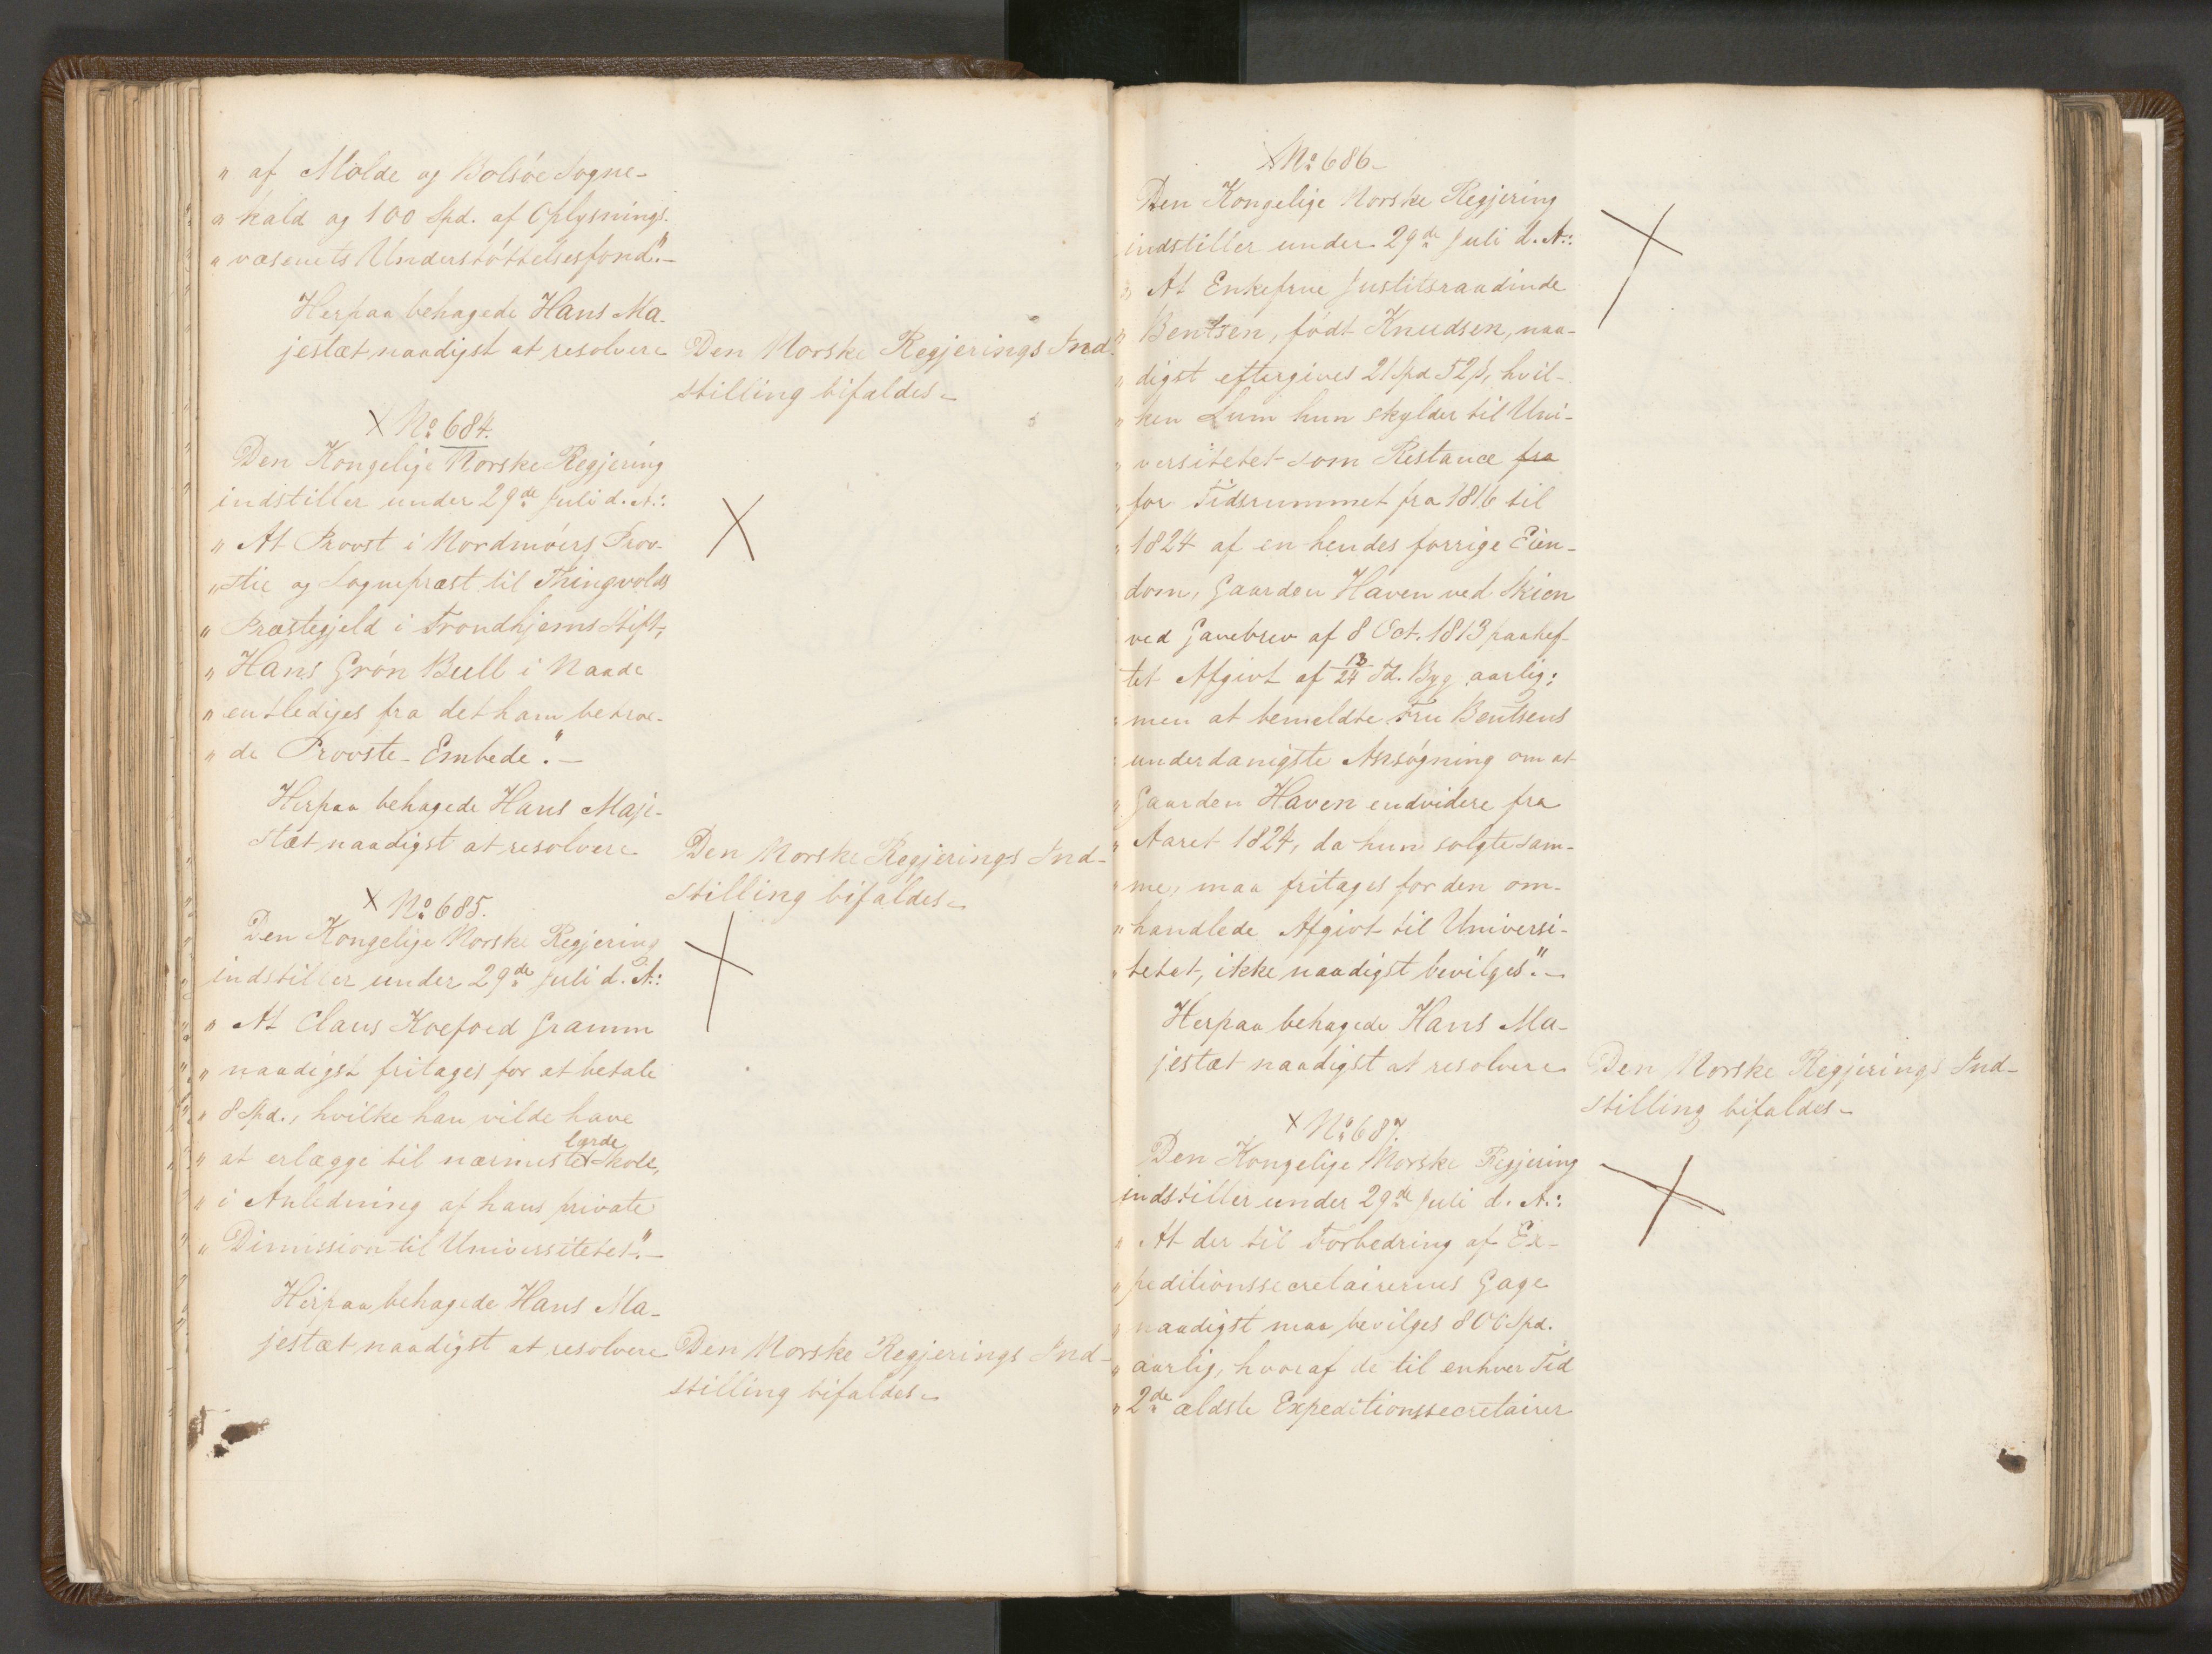 „ af Molde og Bolsöe Sogne-
„ kald og 100 Spd. af Oplysnings-
„ væsenets Understöttelsesfond".-
Herpaa behagede Hans Ma-
jestæt naadigst at resolvere
Den Norske Regjerings Ind-
stilling bifaldes.
X No 684.
Den Kongelige Norske Regjering
indstiller under 29de Juli d. A.:
„ At Provst i Nordmöers Prov-
„ stie og Sognepræst til Thingvolds
„ Præstegjeld i Trondhjems Stift,
„ Hans Grön Bull i Naade
„ entlediges fra det ham betroe-
„ de Provste-Embede".-
Herpaa behagede Hans Maje-
stæt naadigst at resolvere
Den Norske Regjerings Ind-
stilling bifaldes.
X No 685.
Den Kongelige Norske Regjering
indstiller under 29de Juli d. A.:
„ At Claus Koefoed Gramm
„ naadigst fritages for at betale
„ 8 Spd., hvilke han vilde have
„ at erlægge til nærmeste lærde Skole,
„ i Anledning af hans private
„ Dimission til Universitetet".-
Herpaa behagede Hans Ma-
jestæt naadigst at resolvere
Den Norske Regjerings Ind-
stilling bifaldes.
X No 686-
Den Kongelige Norske Regjering
indstiller under 29de Juli d. A.:
„ At Enkefrue Justitsraadinde
„ Bentsen, födt Knudsen, naa-
„ digst eftergives 21 Spd 52 ß, hvil-
„ ken Sum hun skylder til Uni-
„ versitetet som Restance fra
„ for Tidsrummet fra 1816 til
„ 1824 af en hendes forrige Eien-
dom, Gaarden Haven ved Skien
ved Gavebrev af 8 Oct. 1813 paahef-
tet Afgivt af 13/24 Td. Byg aarlig;
„ men at bemeldte Fru Bentsens
„ underdanigste Ansögning om at
„ Gaarden Haven endvidere fra
„ Aaret 1824, da hun solgte sam-
„ me, maa fritages for den om-
„ handlede Afgivt til Universi-
„ tetet, ikke naadigst bevilges".-
Herpaa behagede Hans Ma-
jestæt naadigst at resolvere
Den Norske Regjerings Ind-
stilling bifaldes.
X No 687.
Den Kongelige Norske Regjering
indstiller under 29de Juli d. A.:
„ At der til Forbedring af Ex-
„ peditionssecretairernes Gage
„ naadigst maa bevilges 800 Spd.
„ aarlig, hvoraf de til enhver Tid
„ 2de ældste Expeditionssecretairer